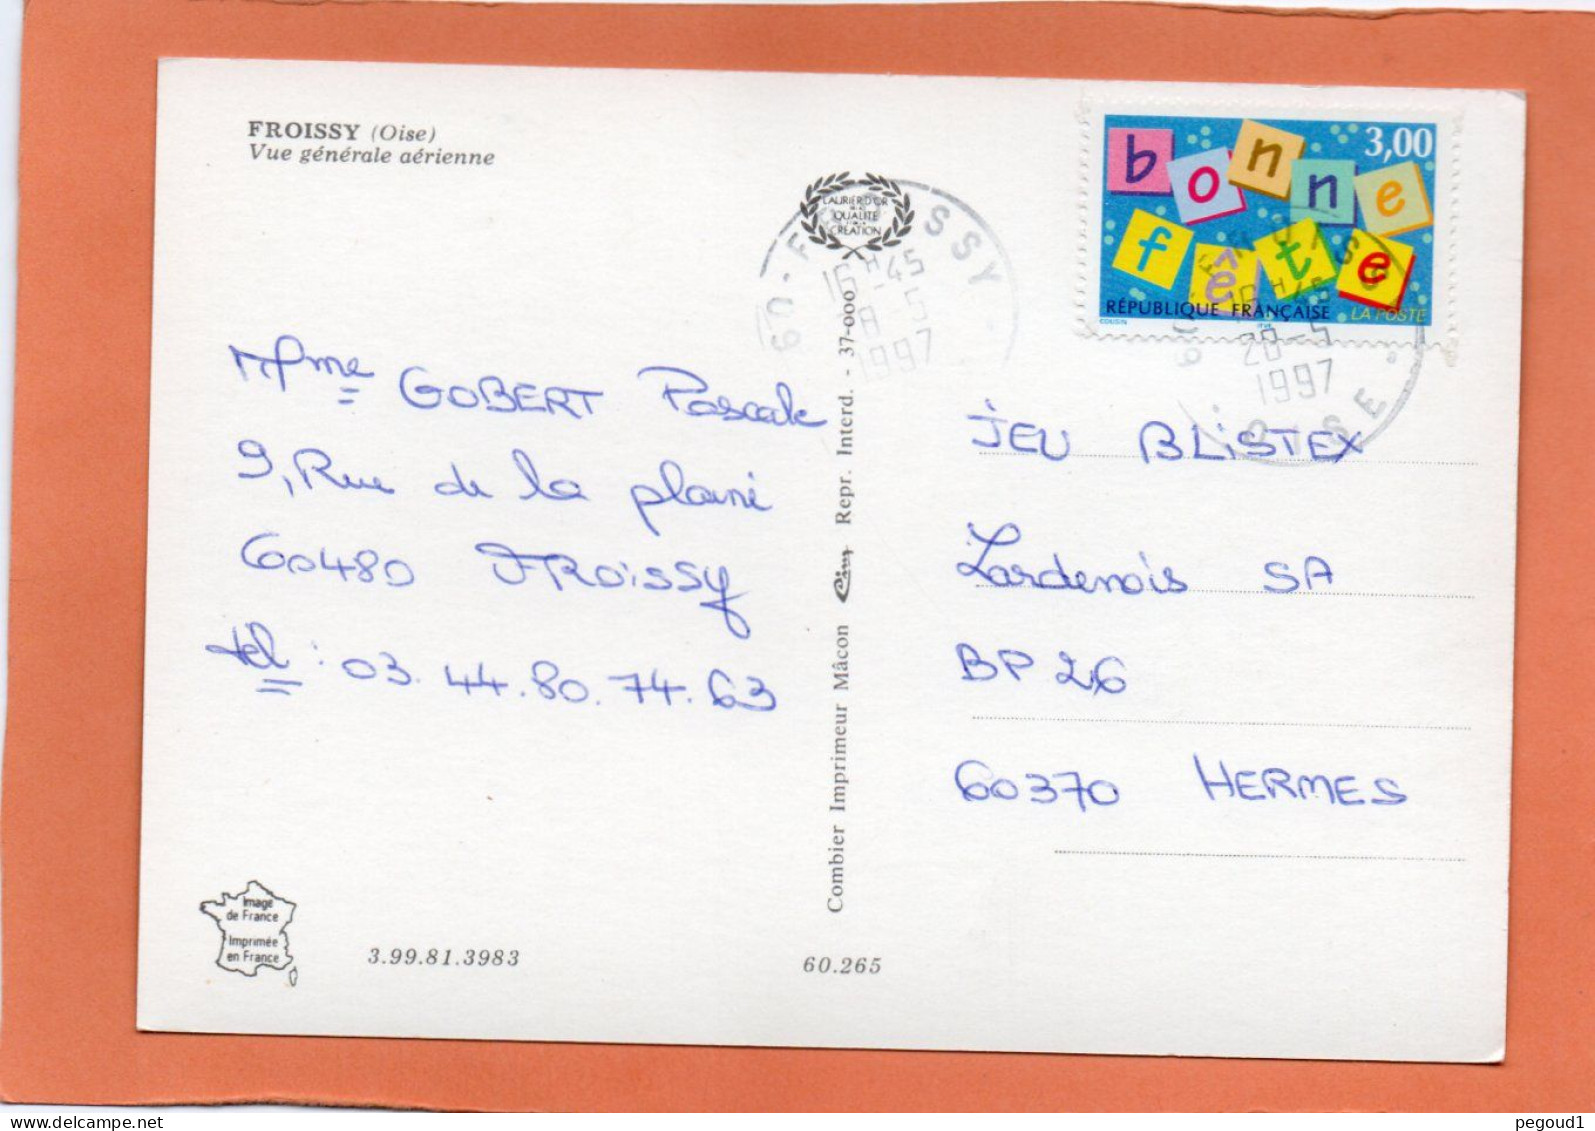 FROISSY (Oise)
Vue générale aérienne
LAURIER D'OR
QUALITÉ
CRÉATION
60 - FROISSY
16H45
28-5
1997
bonne
fête
3,00
RÉPUBLIQUE FRANÇAISE
LA POSTE
COUSIN
60 - FROISSY
16H45
28-5
1997
OISE
Mme GOBERT Pascale
9, Rue de la plaine
60480 FROISSY
tel : 03.44.80.74.63
Combier Imprimeur Mâcon Cim Repr. Interd. - 37-000
JEU BLISTEX
Lardenois SA
BP 26
60370 HERMES
Image
de France
Imprimée
en France
3.99.81.3983
60.265
pegoud1